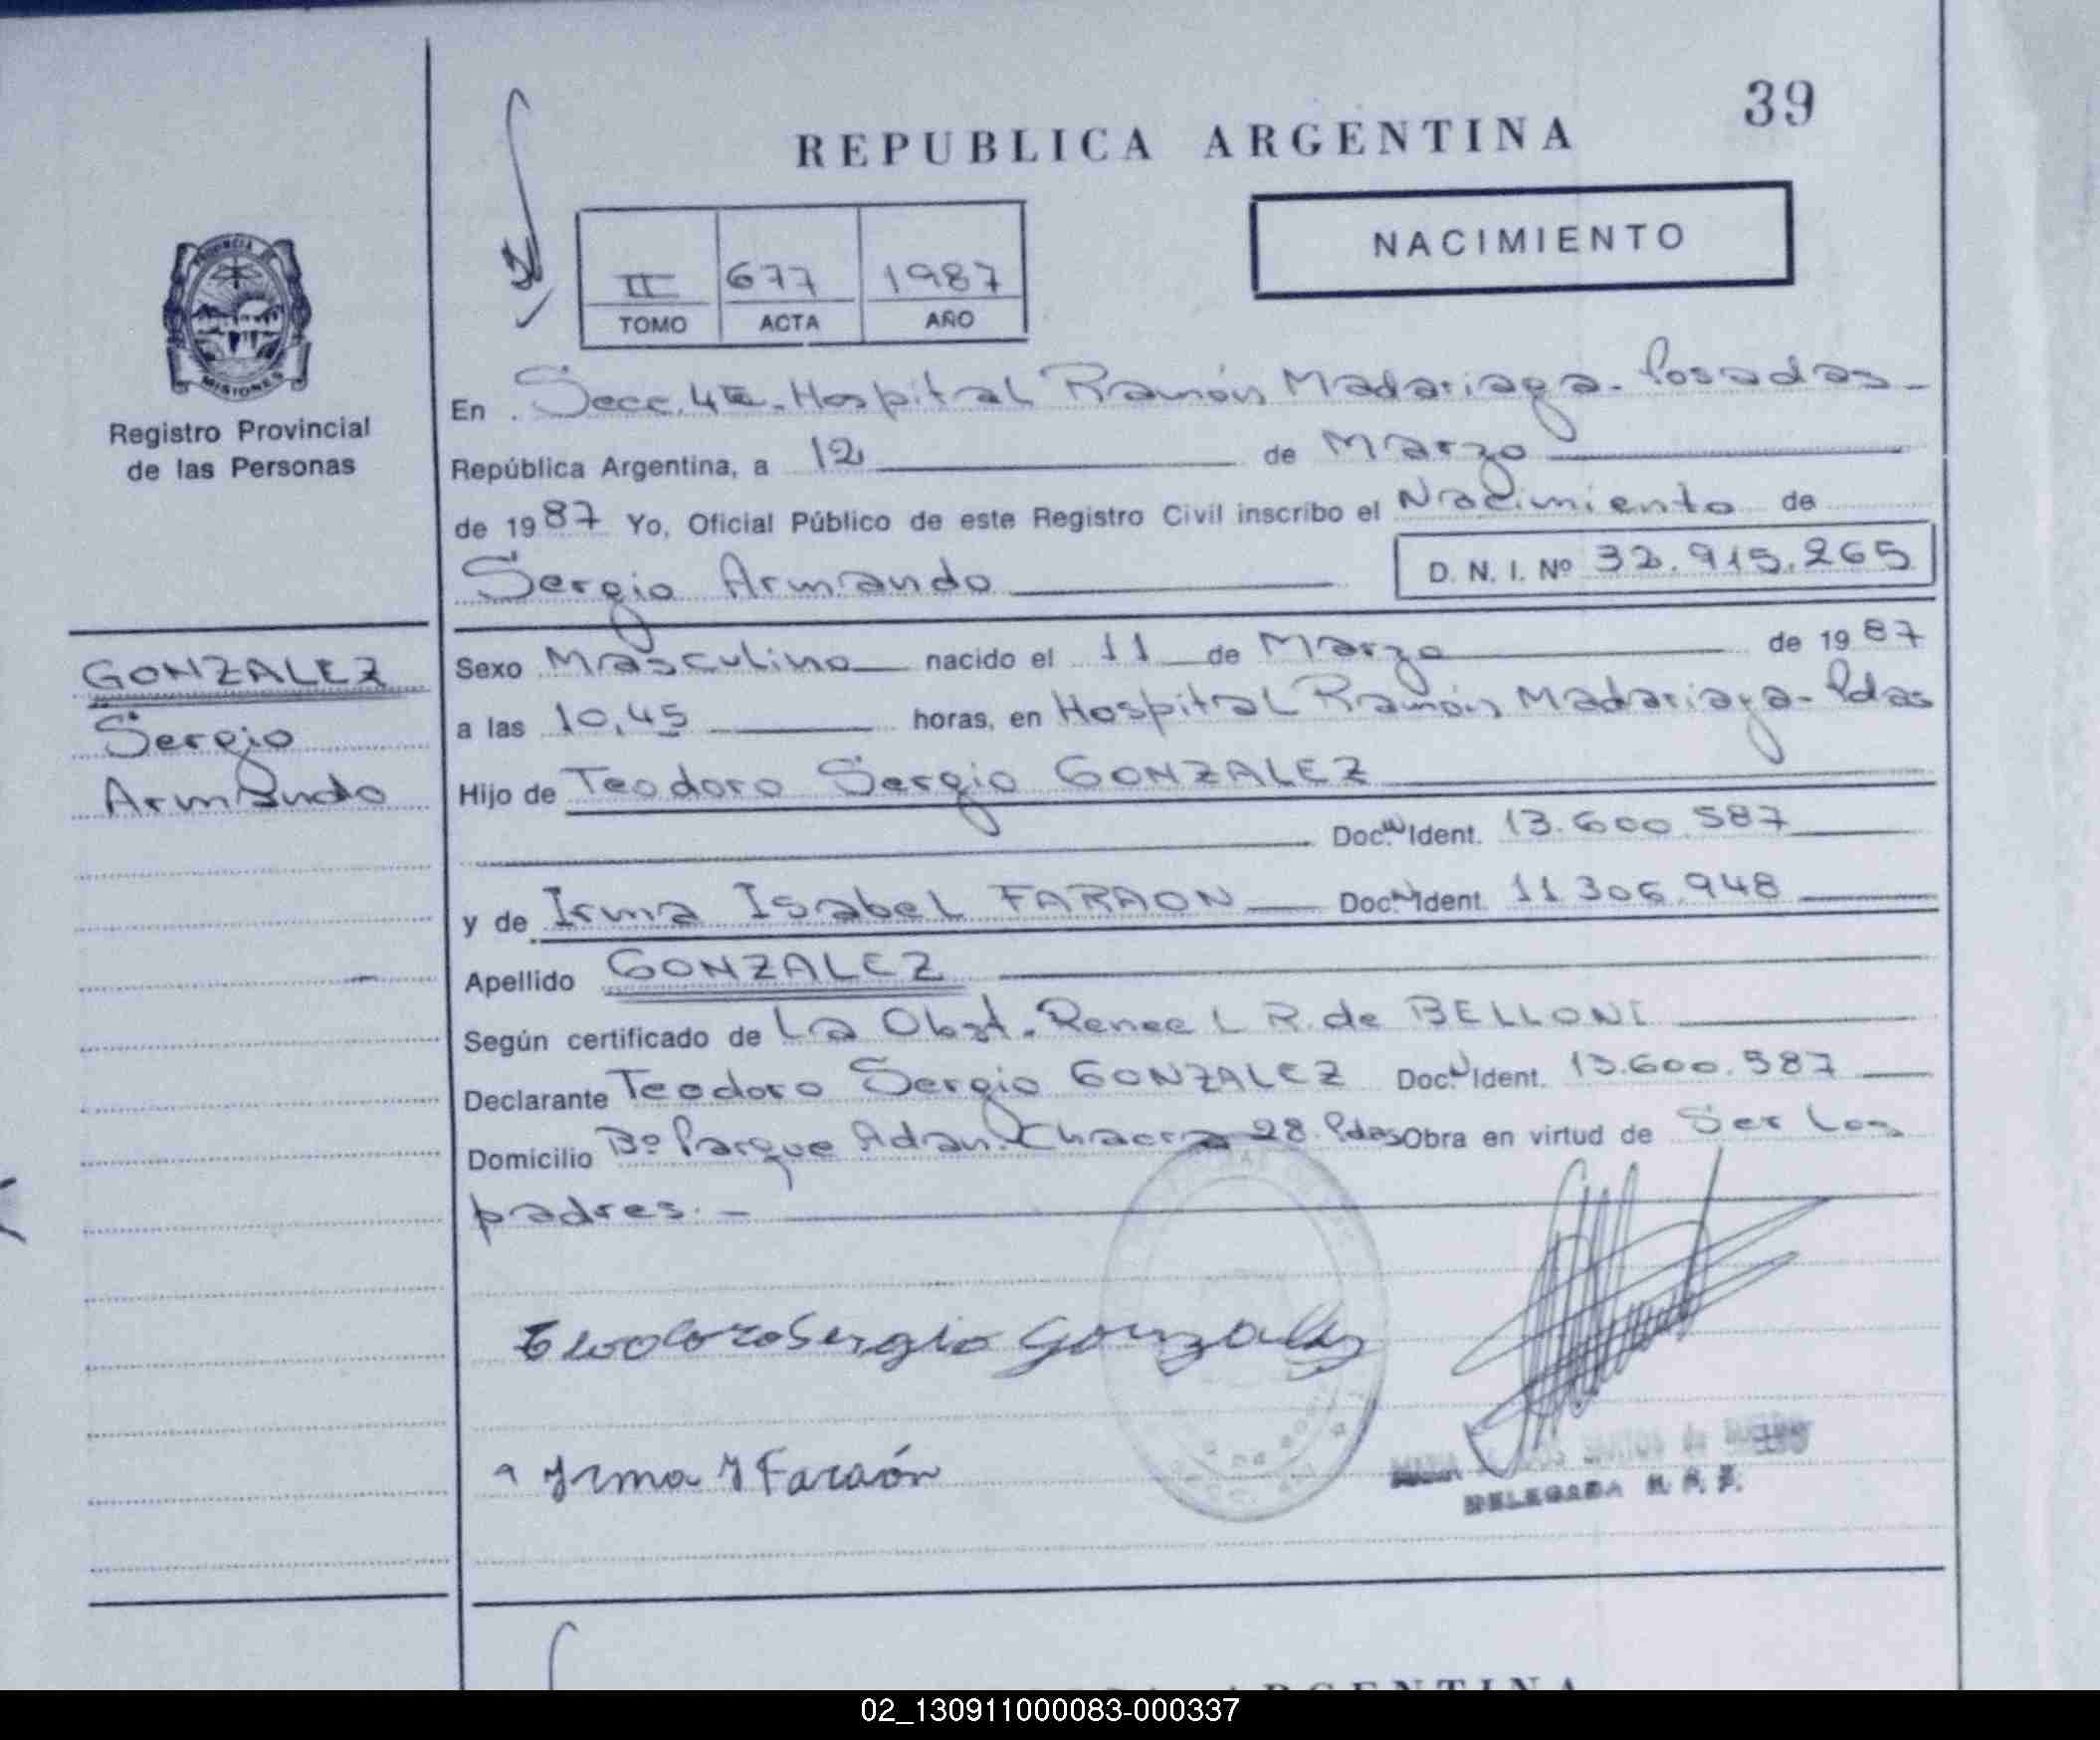 39
REPUBLICA ARGENTINA
NACIMIENTO
II 677 1987
TOMO ACTA AÑO
PROVINCIA DE
MISIONES
Registro Provincial
de las Personas
En Secc. 4ta. Hospital Ramón Madariaga - Posadas -
República Argentina, a 12 de Marzo
de 1987 Yo, Oficial Público de este Registro Civil inscribo el Nacimiento de
Sergio Armando D. N. I. Nº 32.915.265
GONZALEZ
Sergio
Armando
Sexo Masculino nacido el 11 de Marzo de 1987
a las 10,45 horas, en Hospital Ramón Madariaga - Pdas
Hijo de Teodoro Sergio GONZALEZ
Doc. Ident. 13.600.587
y de Irma Isabel FARAON Doc. Ident. 11.306.948
Apellido GONZALEZ
Según certificado de La Obst. Renee L R. de BELLONI
Declarante Teodoro Sergio GONZALEZ Doc. Ident. 13.600.587
Domicilio Bº Parque Adam. Chacra 28. Pdas Obra en virtud de Ser Los
padres. -
Teodoro Sergio Gonzalez
Irma I Faraón
DELEGADA R. P. P.
ARGENTINA
02_130911000083-000337